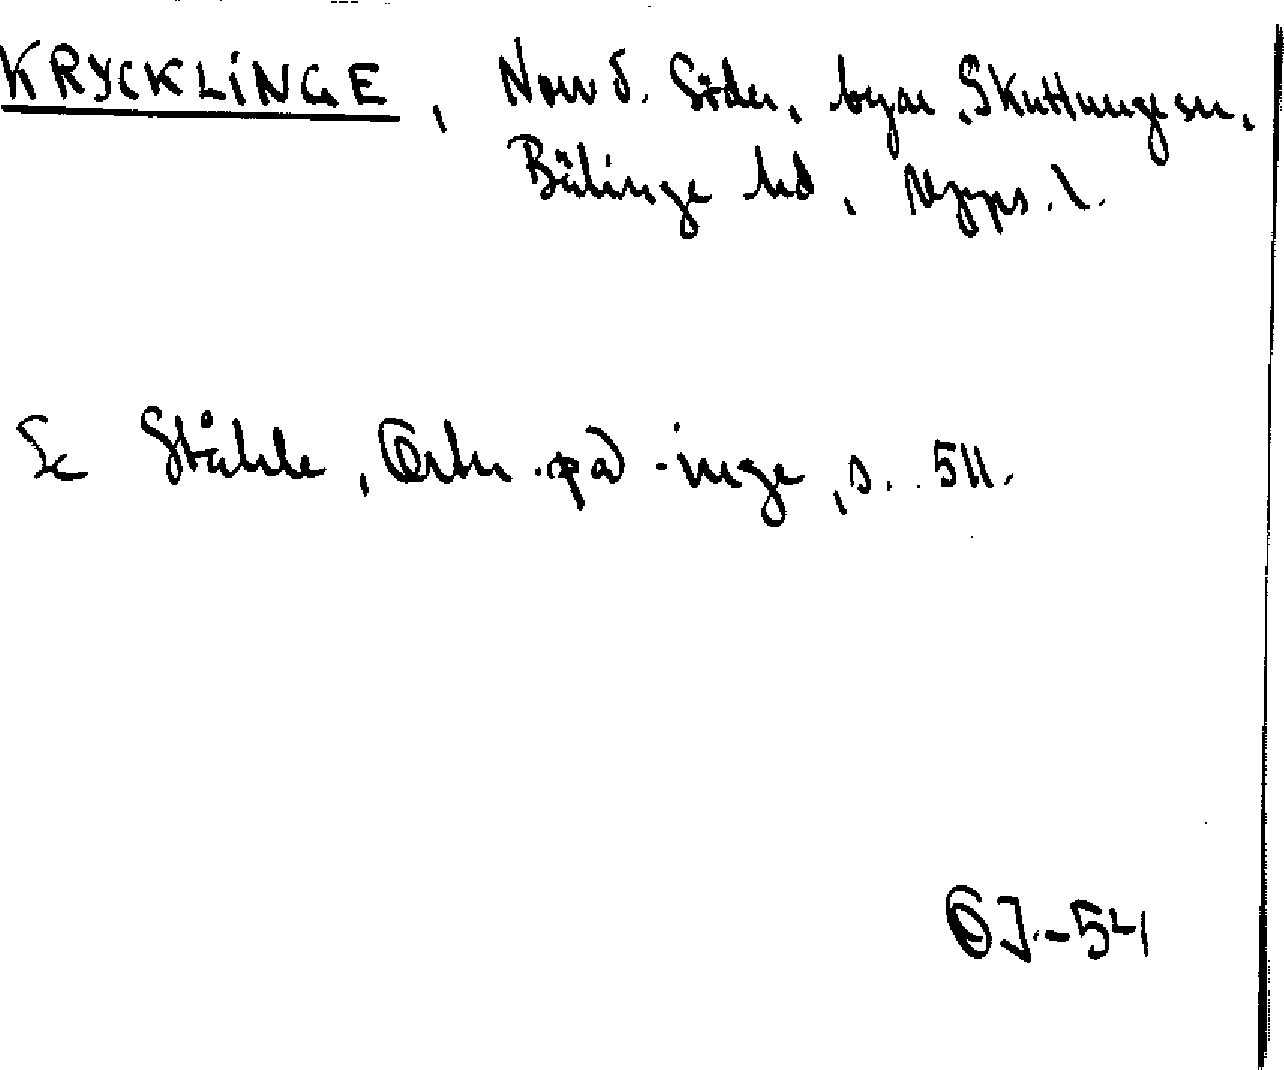 KRYCKLINGE, Norr o. Söder, byar, Skuttunge sn,
Bälinge hd, Upps. l.
Se Ståhle, Ortn. på -inge, s. 511.
OJ-54